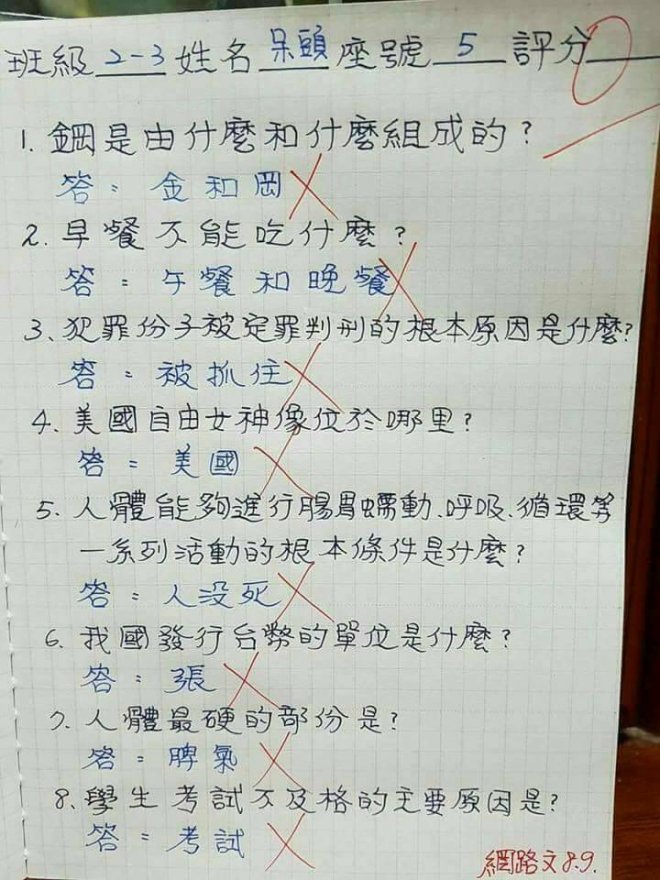 班級 2-3 姓名 呆頭 座號 5 評分 0
1. 鋼是由什麼和什麼組成的?
答: 金和岡
2. 早餐不能吃什麼?
答: 午餐和晚餐
3、犯罪份子被定罪判刑的根本原因是什麼?
答: 被抓住
4、美國自由女神像位於哪里?
答: 美國
5、人體能夠進行腸胃蠕動、呼吸、循環等
一系列活動的根本條件是什麼?
答: 人沒死
6、我國發行台幣的單位是什麼?
答: 張
7、人體最硬的部份是?
答: 脾氣
8、學生考試不及格的主要原因是?
答: 考試
網路文8.9.